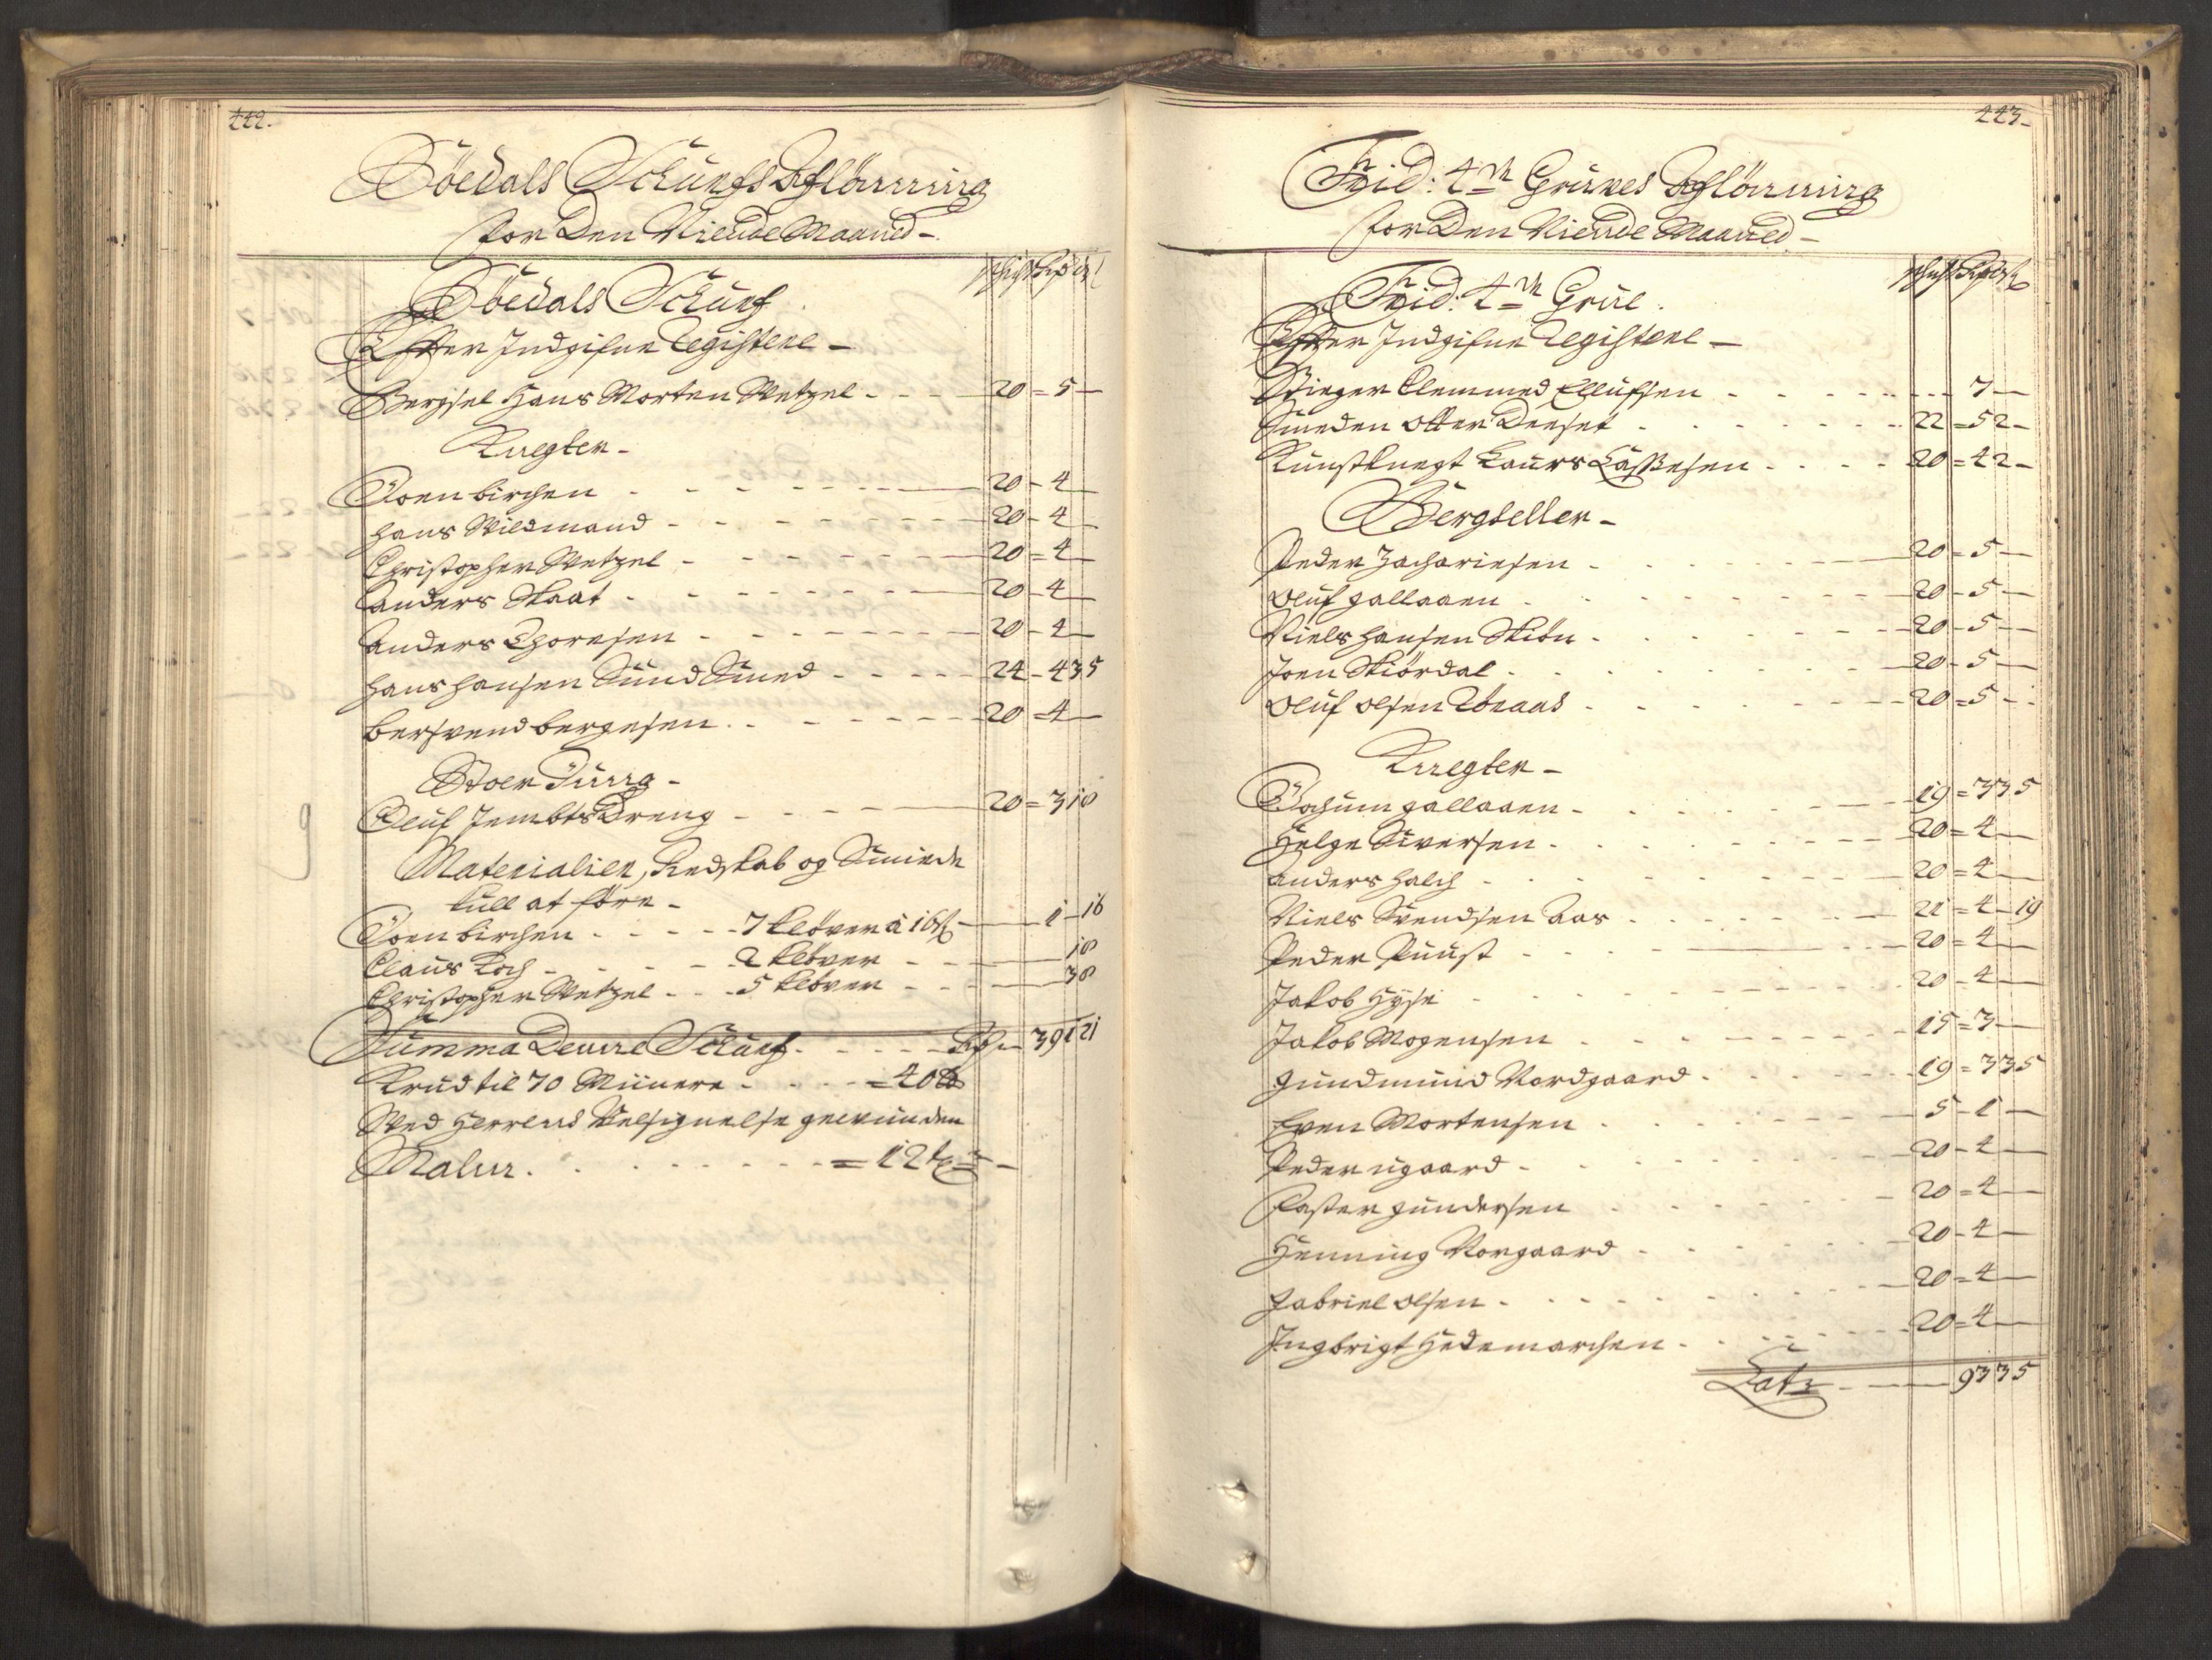 442.
Söedals Schurfs Afflönning
for Den Niende Maaned -
Söedals Schurf
Efter Indgifne Registere -
Bergsel Hans Morten Wetzel - - - 20 = 5 -
Knegter -
Joen birchen - - - 20 - 4 -
Hans Wildmand - - - 20 - 4 -
Christopher Wetzel - - - 20 = 4 -
Anders Skaat - - - 20 - 4 -
Anders Thoresen - - - 20 - 4 -
Hans Hansen Sund Smed - - - 24 - 4 3 5
bersvend bergesen - - - 20 = 4 -
Oluf Jembts Dreng - - - 20 = 3 18
Materialier, Redskab og Smiede
kull at före -
Joen birchen - - - 7 klöver à 16 s - 1 - 16
Claus Koch - - - 2 klöver - - - 18
Christopher Wetzel - - 5 klöver - - - 38
Summa Denne Schurf - - - Rd - 39 1 21
Krud til 70 Miinere - - - = 40 lb
Med Herrens Velsignelse gewunden
Malm - - - = 12 t = -
443-
Frid: 4de Gruves Afflönning
for Den Niende Maaned -
Frid: 4de Grue.
Efter Indgifne Registere -
Stieger Clemmed Ellufsen - - - 7 -
Smeden otter Dreset - - - 22 = 5 2 -
Kunstknegt Laurs Lassesen - - - 20 = 4 2 -
Bergseller -
Peder Zachariesen - - - 20 = 5 -
Oluf gallaaen - - - 20 - 5 -
Niels Hansen Skiön - - - 20 - 5 -
Joen Stiördal - - - 20 - 5 -
Oluf olsen Aaas - - - 20 = 5 -
Knegter -
Jochum gallaaen - - - 19 = 3 3 5
Helge Siversen - - - 20 = 4 -
Anders Halch - - - 20 = 4 -
Niels Svendsen Aas - - - 21 = 4 - 19
Peder Puust - - - 20 = 4 -
Jakob Hÿse - - - 20 - 4 -
Jakob Mogensen - - - 15 = 3 -
Gundmund Nordgaard - - - 19 = 3 3 5
Even Mortensen - - - 5 - 1 -
Peder ugaard - - - 20 - 4 -
Paster gundersen - - - 20 = 4 -
Henning Norgaard - - - 20 - 4 -
Gabriel olsen - - - 20 = 4 -
Ingbrigt Hedemarchen - - - 20 = 4 -
Lats - - - 93 3 5